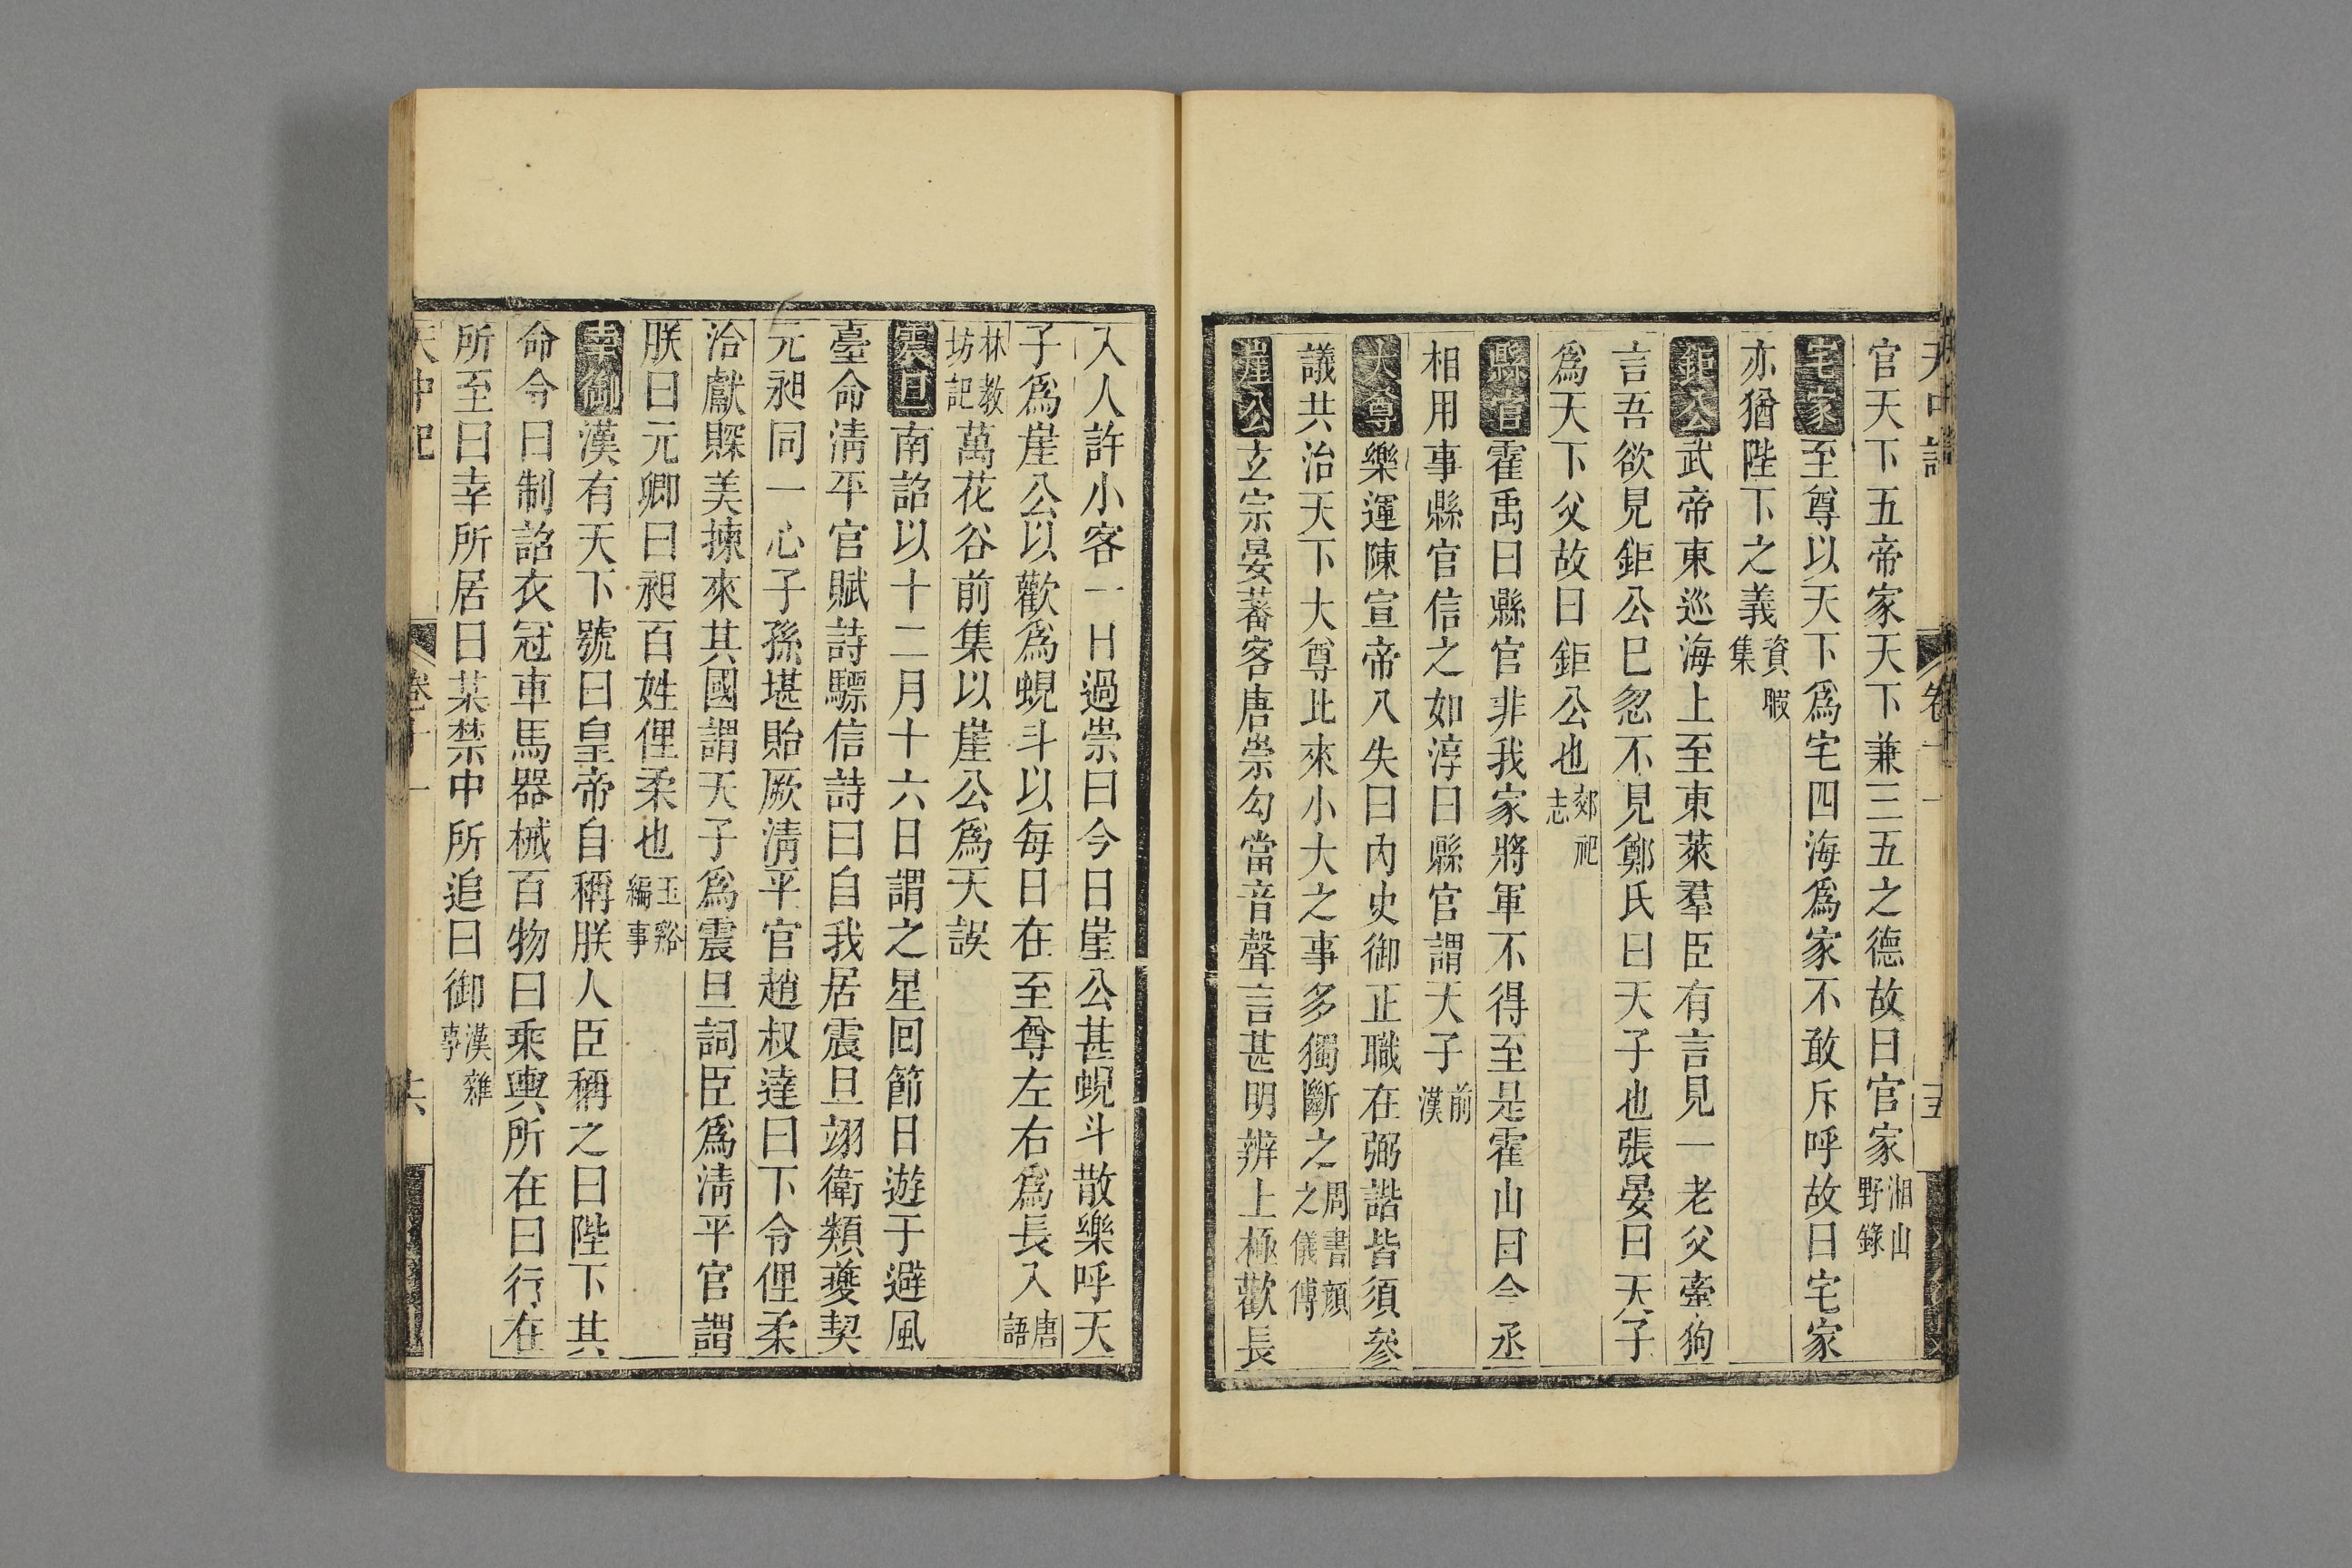 官天下五帝家天下兼三五之德故曰官家湘山野錄
宅家至尊以天下爲宅四海爲家不敢斥呼故曰宅家
亦猶陛下之義資暇集
鉅公武帝東巡海上至東萊羣臣有言見一老父牽狗
言吾欲見鉅公巳忽不見鄭氏曰天子也張晏曰天子
爲天下父故曰鉅公也郊祀志
縣官霍禹曰縣官非我家將軍不得至是霍山曰今丞
相用事縣官信之如淳曰縣官謂天子前漢
大尊樂運陳宣帝八失曰內史御正職在弼諧皆須參
議共治天下大尊比來小大之事多獨斷之周書顏之儀傳
崖公玄宗宴蕃客唐崇勾當音聲言甚明辨上極歡長
入人許小客一日過崇曰今日崖公甚蜆斗散樂呼天
子爲崖公以歡爲蜆斗以每日在至尊左右爲長入唐語
林教坊記萬花谷前集以崖公爲天誤
震旦南詔以十二月十六日謂之星回節日遊于避風
臺命清平官賦詩驃信詩曰自我居震旦翊衛類夔契
元昶同一心子孫堪貽厥清平官趙叔達曰下令俚柔
洽獻賝美揀來其國謂天子爲震旦詞臣爲清平官謂
朕曰元卿曰昶百姓俚柔也玉谿編事
幸御漢有天下號曰皇帝自稱朕人臣稱之曰陛下其
命令曰制詔衣冠車馬器械百物曰乘輿所在曰行在
所至曰幸所居曰某禁中所追曰御漢雜事
天中記 卷十一 六